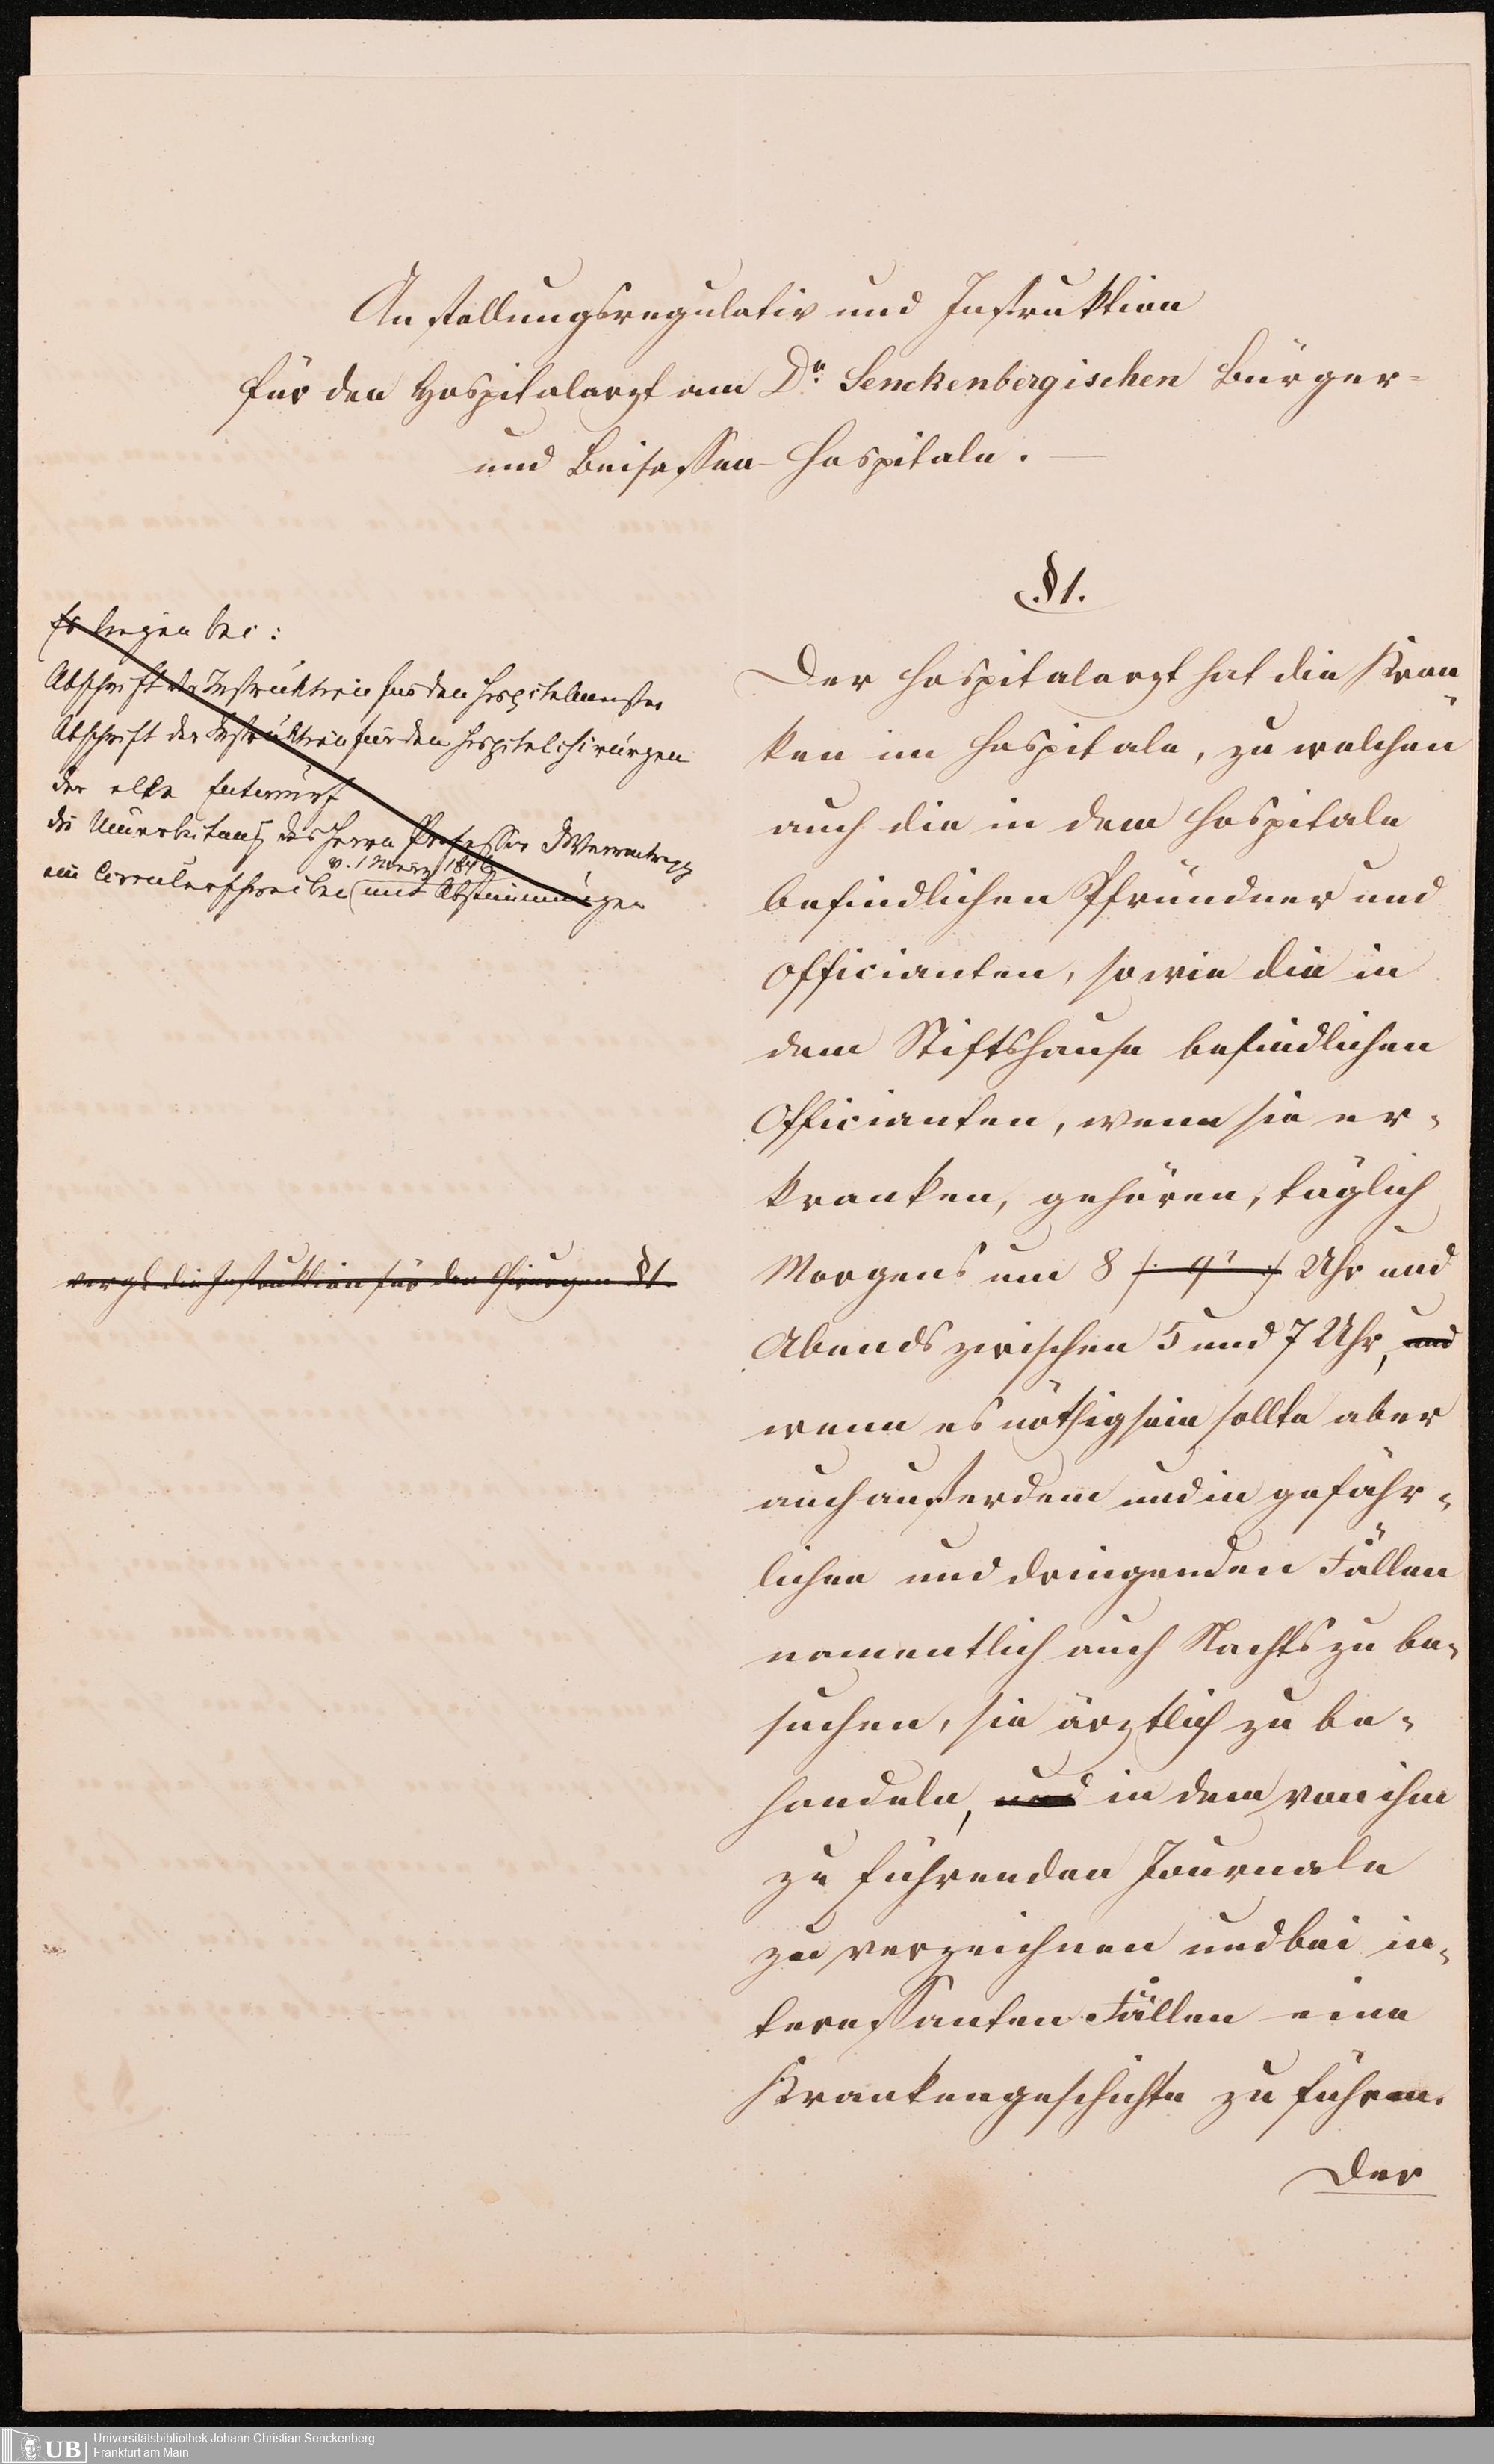 Anstellungsregulativ und Instruktion
für den Hospitalarzt am Dr. Senckenbergischen Bürger-
und Beisassen-Hospitale.
§ 1.
Es liegen bei:
Abschrift der Instruktion für den Hospitalmeister
Abschrift der Instruktion für den Hospitalchirurgen
der alte Entwurf
die Umarbeitung des Herrn Professor Dr Varrentrapp
ein Circularschreiben v. 1 März 1846 mit Abstimmungen
vergl. die Instruktion für den Chirurgen § 1.
Der Hospitalarzt hat die Kran-
ken im Hospitale, zu welchen
auch die in dem Hospitale
befindlichen Pfründner und
Officianten, sowie die in
dem Stiftshause befindlichen
Officianten, wenn sie er-
kranken, gehören, täglich
Morgens um 8 /: 9? :/ Uhr und
Abends zwischen 5 und 7 Uhr, und
wenn es nöthig sein sollte aber
auch außerdem und in gefähr-
lichen und dringenden Fällen
namentlich auch Nachts zu be-
suchen, sie ärztlich zu be-
handeln, und in dem von ihm
zu führenden Journale
zu verzeichnen und bei in-
teressanten Fällen eine
Krankengeschichte zu führen.
Der
UB
Universitätsbibliothek Johann Christian Senckenberg
Frankfurt am Main